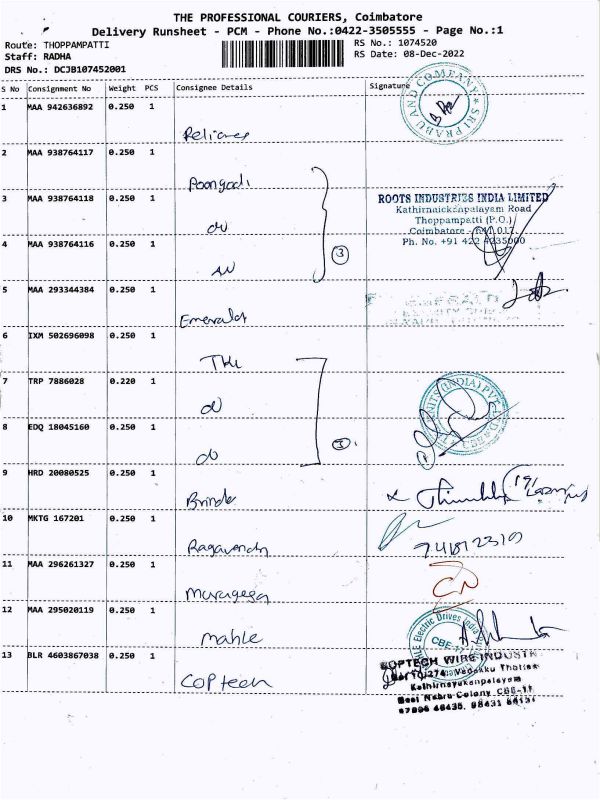 THE PROFESSIONAL COURIERS, Coimbatore
Delivery Runsheet - PCM - Phone No.:0422-3505555 - Page No.:1
Route: THOPPAMPATTI
Staff: RADHA
DRS No.: DCJB107452001
RS No.: 1074520
RS Date: 08-Dec-2022
S No Consignment No Weight PCS Consignee Details Signature
1 MAA 942636892 0.250 1
Reliance
SRI PRABU AND COMPANY
2 MAA 938764117 0.250 1
Poongodi
3 MAA 938764118 0.250 1
ROOTS INDUSTRIES INDIA LIMITED
Kathirnaickenpalayam Road
Thoppampatti (P.O.)
Coimbatore - 641 017.
Ph. No. +91 422 4235000
4 MAA 938764116 0.250 1
3
5 MAA 293344384 0.250 1
Emerald
EMERALD
6 IXM 502696098 0.250 1
7 TRP 7886028 0.220 1
UNITS (INDIA) PVT
8 EDQ 18045160 0.250 1
9 HRD 20080525 0.250 1
Brinda
10 MKTG 167201 0.250 1
Ragavendra
11 MAA 296261327 0.250 1
Murugesa
12 MAA 295020119 0.250 1
Mahle
Electric Drives India
CBE-17
13 BLR 4603867038 0.250 1
COPtech
COPTECH WIRE INDUSTR
Kathirnayakanpalayam